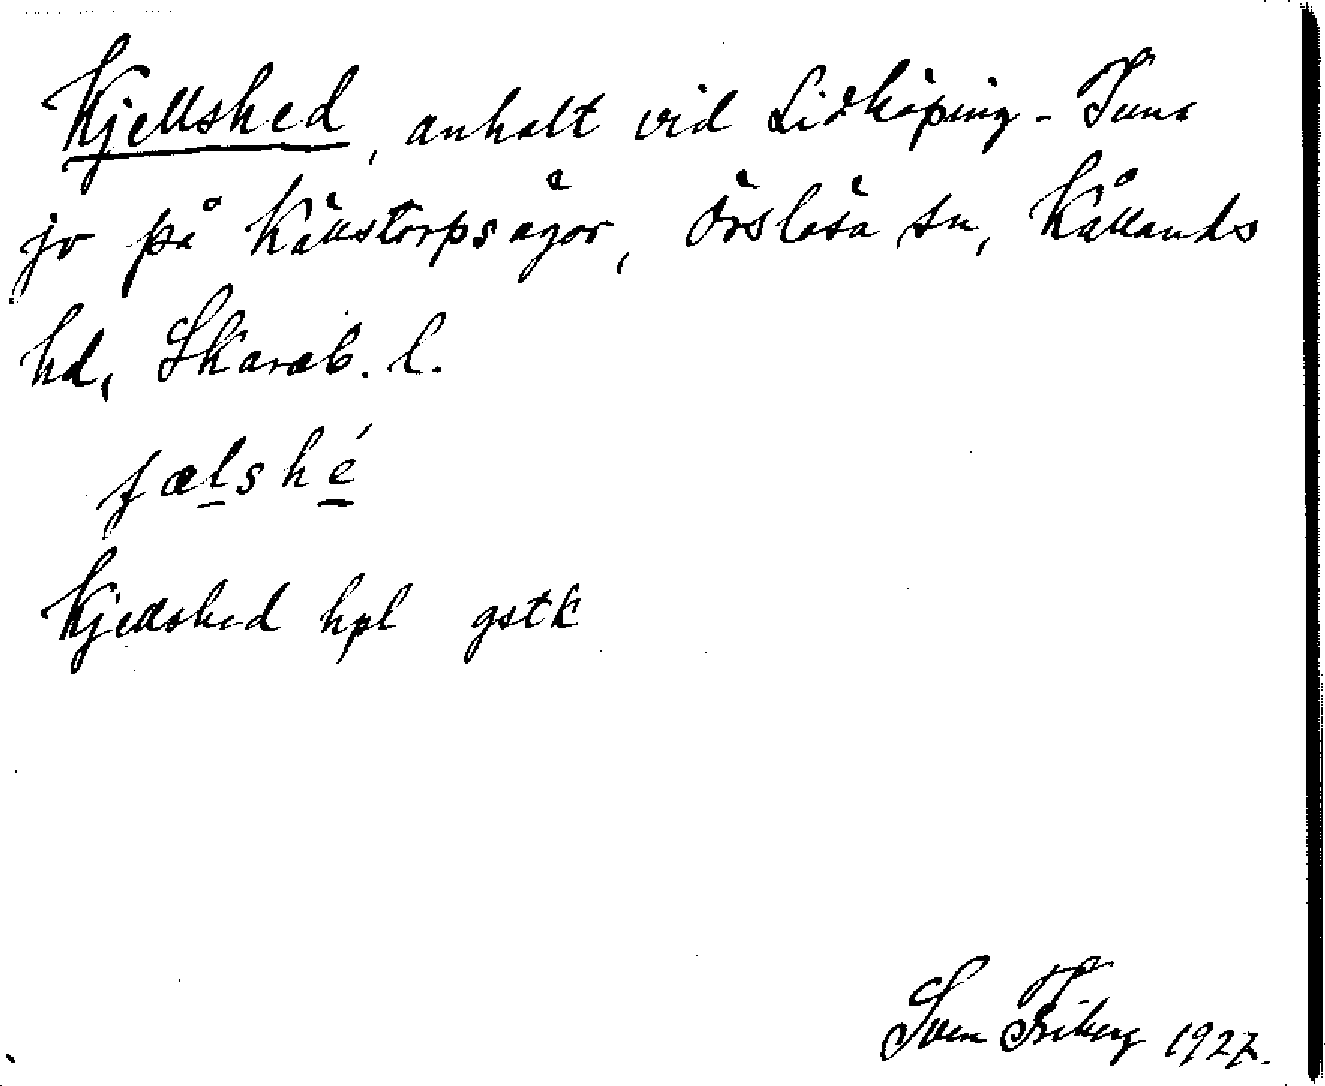 Kjellshed, anhalt vid Lidköping - Tuns
jv på Källstorps ägor, Örslösa sn, Kållands
hd, Skarab. l.
fælshé
Kjellshed hpl gstk
Sven Friberg 1927.